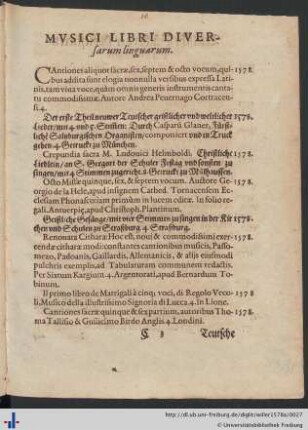 MVSICI LIBRI DIVER-
sarum linguarum.
CAntiones aliquot sacræ, sex, septem & octo vocum, qui- 1578.
bus addita sunt elogia nonnulla versibus expressa Latinis, tam viua voce, quàm omnis generis instrumentis cantatu commodissimæ. Autore Andrea Peuernago Cortracensi. 4.
Der erste Theil newer Teutscher geistlicher vnd weltlicher 1578.
Lieder, mit 4. vnd 5. Stimen: Durch Casparū Glaner, Fürstlichē Saltzburgischen Organisten, componiert vnd in Truck
gebē. 4. Getruckt zu München.
Crepundia sacra M. Ludouici Helmboldi. Christliche 1578.
Liedlein, an S. Gregorij der Schuler Festag vnd sonsten zu
singen, mit 4 Stimmen zugericht. 8. Getruckt zu Mülhausen.
Octo Missæ quinque, sex, & septem vocum. Auctore Ge- 1578.
orgio de la Hele, apud insignem Cathed. Tornacensem Ecclesiam Phonascorum primùm in lucem editæ. In folio regali. Antuerpiæ, apud Christoph. Plantinum.
Geistliche Gesänge, mit vier Stimmen zu singen in der Kir 1578.
chen vnd Schulen zu Straßburg. 4. Straßburg.
Renouata Cithara: Hoc est, noui & commodissimi exer- 1578.
cendæ citharæ modi: constantes cantionibus musicis, Passomezo, Padoanis, Gailiardis, Allemanicis, & alijs eiusmodi
pulchris exemplis, ad Tabulaturam communem redactis.
Per Sixtum Kargium 4. Argentorati, apud Bernardum Tobinum.
Il primo libro de Matrigali à cinq; voci, di Regolo Veco- 1578
li, Musico della illustrissima Signoria di Lucca. 4. In Lione.
Cantiones sacræ quinque & sex partium, autoribus Tho 1578.
ma Tallisio & Guilielmo Birdo Anglis 4. Londini.
C 3 Teutsche
http://dl.ub.uni-freiburg.de/diglit/willer1578a/0027
© Universitätsbibliothek Freiburg